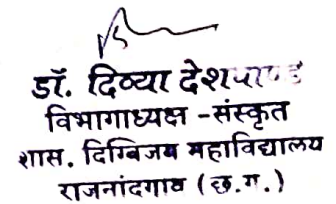 डॉ. दिव्या देशपाण्डे
विभागाध्यक्ष -संस्कृत
शास. दिग्विजय महाविद्यालय
राजनांदगाव (छ.ग.)